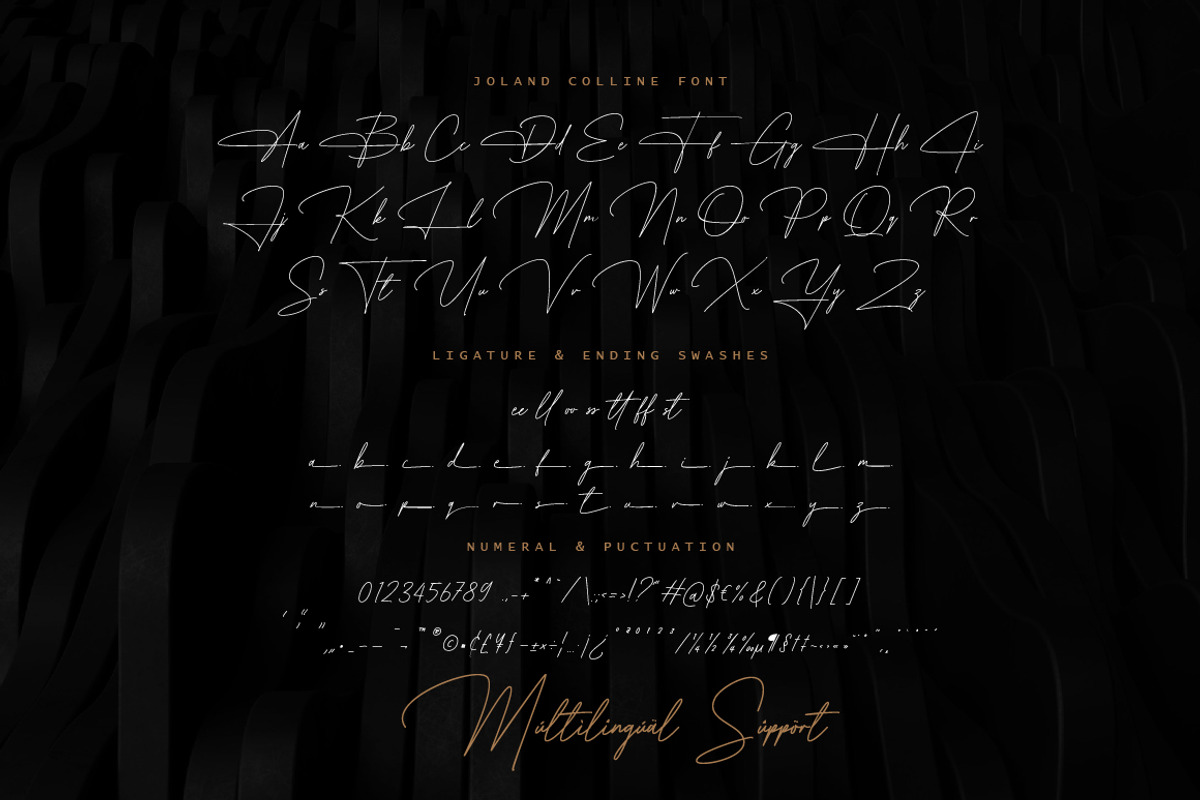 JOLAND COLLINE FONT
Aa Bb Cc Dd Ee Ff Gg Hh Ii
Jj Kk Ll Mm Nn Oo Pp Qq Rr
Ss Tt Uu Vv Ww Xx Yy Zz
LIGATURE & ENDING SWASHES
ee ll oo ss tt ff st
a b c d e f g h i j k l m
n o p q r s t u v w x y z
NUMERAL & PUCTUATION
0123456789 .,-+*^~/\:;<=>!?"#@$€%&(){|}[]
™®©•¢£¥ƒ–±×÷¦…¡¿°²⁰¹²³/¼½¾‰µ¶§†‡~‹›«»
Múltilingúäl Súppört